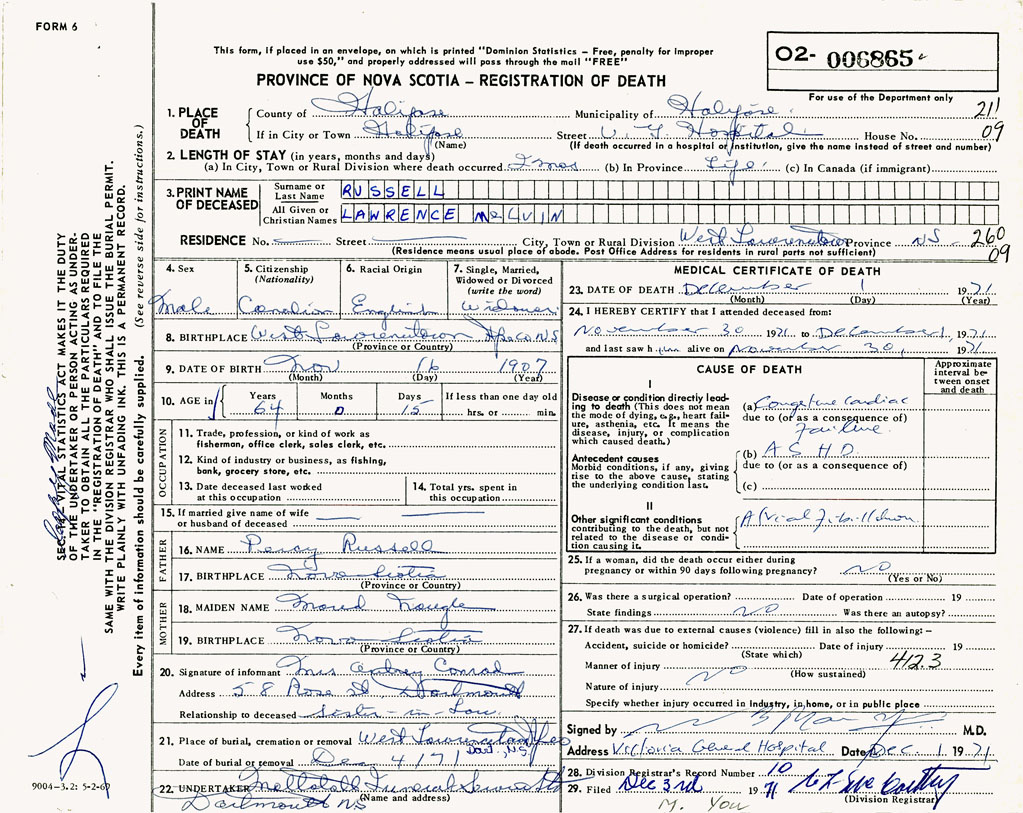 FORM 6
This form, if placed in an envelope, on which is printed "Dominion Statistics – Free, penalty for improper
use $50," and properly addressed will pass through the mail "FREE"
02- 006865
PROVINCE OF NOVA SCOTIA – REGISTRATION OF DEATH
For use of the Department only
1. PLACE OF DEATH
County of Halifax Municipality of Halifax 211
If in City or Town Halifax Street V. G. Hospital House No. 09
(Name) (If death occurred in a hospital or institution, give the name instead of street and number)
2. LENGTH OF STAY (in years, months and days)
(a) In City, Town or Rural Division where death occurred (b) In Province Life (c) In Canada (if immigrant)
3. PRINT NAME OF DECEASED
Surname or Last Name RUSSELL
All Given or Christian Names LAWRENCE MELVIN
RESIDENCE No. Street City, Town or Rural Division West Lawrencetown Province NS 260
(Residence means usual place of abode. Post Office Address for residents in rural parts not sufficient) 09
4. Sex Male
5. Citizenship (Nationality) Canadian
6. Racial Origin English
7. Single, Married, Widowed or Divorced (write the word) Widower
8. BIRTHPLACE West Lawrencetown NS
(Province or Country)
9. DATE OF BIRTH Nov 16 1907
(Month) (Day) (Year)
10. AGE in Years 64 Months 0 Days 15 If less than one day old hrs. or min.
OCCUPATION
11. Trade, profession, or kind of work as
fisherman, office clerk, sales clerk, etc.
12. Kind of industry or business, as fishing,
bank, grocery store, etc.
13. Date deceased last worked
at this occupation
14. Total yrs. spent in
this occupation
15. If married give name of wife
or husband of deceased
FATHER
16. NAME Percy Russell
17. BIRTHPLACE Nova Scotia
(Province or Country)
MOTHER
18. MAIDEN NAME Maud Naugle
19. BIRTHPLACE Nova Scotia
(Province or Country)
20. Signature of informant Mrs Audrey Conrad
Address 58 Rose St Dartmouth
Relationship to deceased Sister-in-Law
21. Place of burial, cremation or removal West Lawrencetown
NS
Date of burial or removal Dec 4/71
22. UNDERTAKER Funeral
Dartmouth NS (Name and address)
MEDICAL CERTIFICATE OF DEATH
23. DATE OF DEATH December 1 1971
(Month) (Day) (Year)
24. I HEREBY CERTIFY that I attended deceased from:
November 30 1971 to December 1, 1971
and last saw him alive on November 30, 1971
CAUSE OF DEATH
Approximate interval between onset and death
I
Disease or condition directly leading to death (This does not mean the mode of dying, e.g., heart failure, asthenia, etc. It means the disease, injury, or complication which caused death.)
(a) Congestive cardiac
due to (or as a consequence of)
failure
Antecedent causes
Morbid conditions, if any, giving rise to the above cause, stating the underlying condition last.
(b) A S H D
due to (or as a consequence of)
(c)
II
Other significant conditions
contributing to the death, but not related to the disease or condition causing it.
Atrial Fibrillation
25. If a woman, did the death occur either during
pregnancy or within 90 days following pregnancy? NO
(Yes or No)
26. Was there a surgical operation? Date of operation 19
State findings NO Was there an autopsy?
27. If death was due to external causes (violence) fill in also the following: –
Accident, suicide or homicide? Date of injury 19
(State which) 412.3
Manner of injury NO
(How sustained)
Nature of injury
Specify whether injury occurred in Industry, in home, or in public place
Signed by M.D.
Address Victoria General Hospital Date Dec 1 1971
28. Division Registrar's Record Number 10
29. Filed Dec 3rd 1971
(Division Registrar)
SEC. 16 VITAL STATISTICS ACT MAKES IT THE DUTY
OF THE UNDERTAKER OR PERSON ACTING AS UNDER-
TAKER TO OBTAIN ALL THE PARTICULARS REQUIRED
IN THE "REGISTRATION OF DEATH" AND TO FILE THE
SAME WITH THE DIVISION REGISTRAR WHO SHALL ISSUE THE BURIAL PERMIT.
WRITE PLAINLY WITH UNFADING INK. THIS IS A PERMANENT RECORD.
Every item of information should be carefully supplied. (See reverse side for instructions.)
9004-3.2: 5-2-67